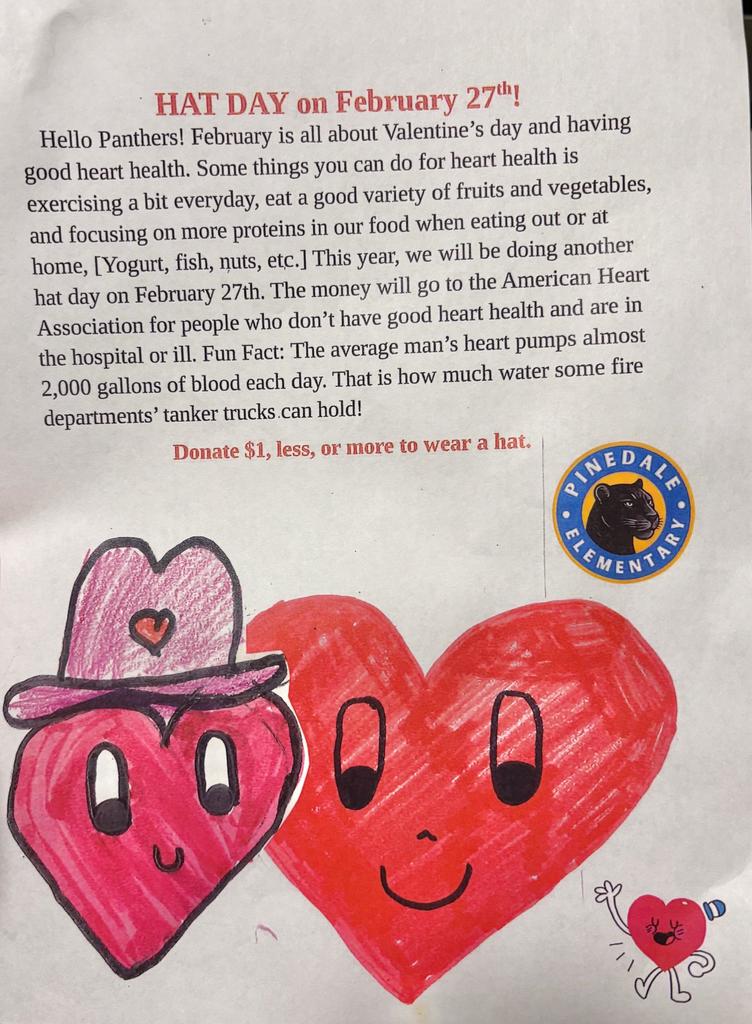 HAT DAY on February 27th!
Hello Panthers! February is all about Valentine's day and having
good heart health. Some things you can do for heart health is
exercising a bit everyday, eat a good variety of fruits and vegetables,
and focusing on more proteins in our food when eating out or at
home, [Yogurt, fish, nuts, etc.] This year, we will be doing another
hat day on February 27th. The money will go to the American Heart
Association for people who don't have good heart health and are in
the hospital or ill. Fun Fact: The average man's heart pumps almost
2,000 gallons of blood each day. That is how much water some fire
departments' tanker trucks can hold!
Donate $1, less, or more to wear a hat.
PINEDALE
ELEMENTARY